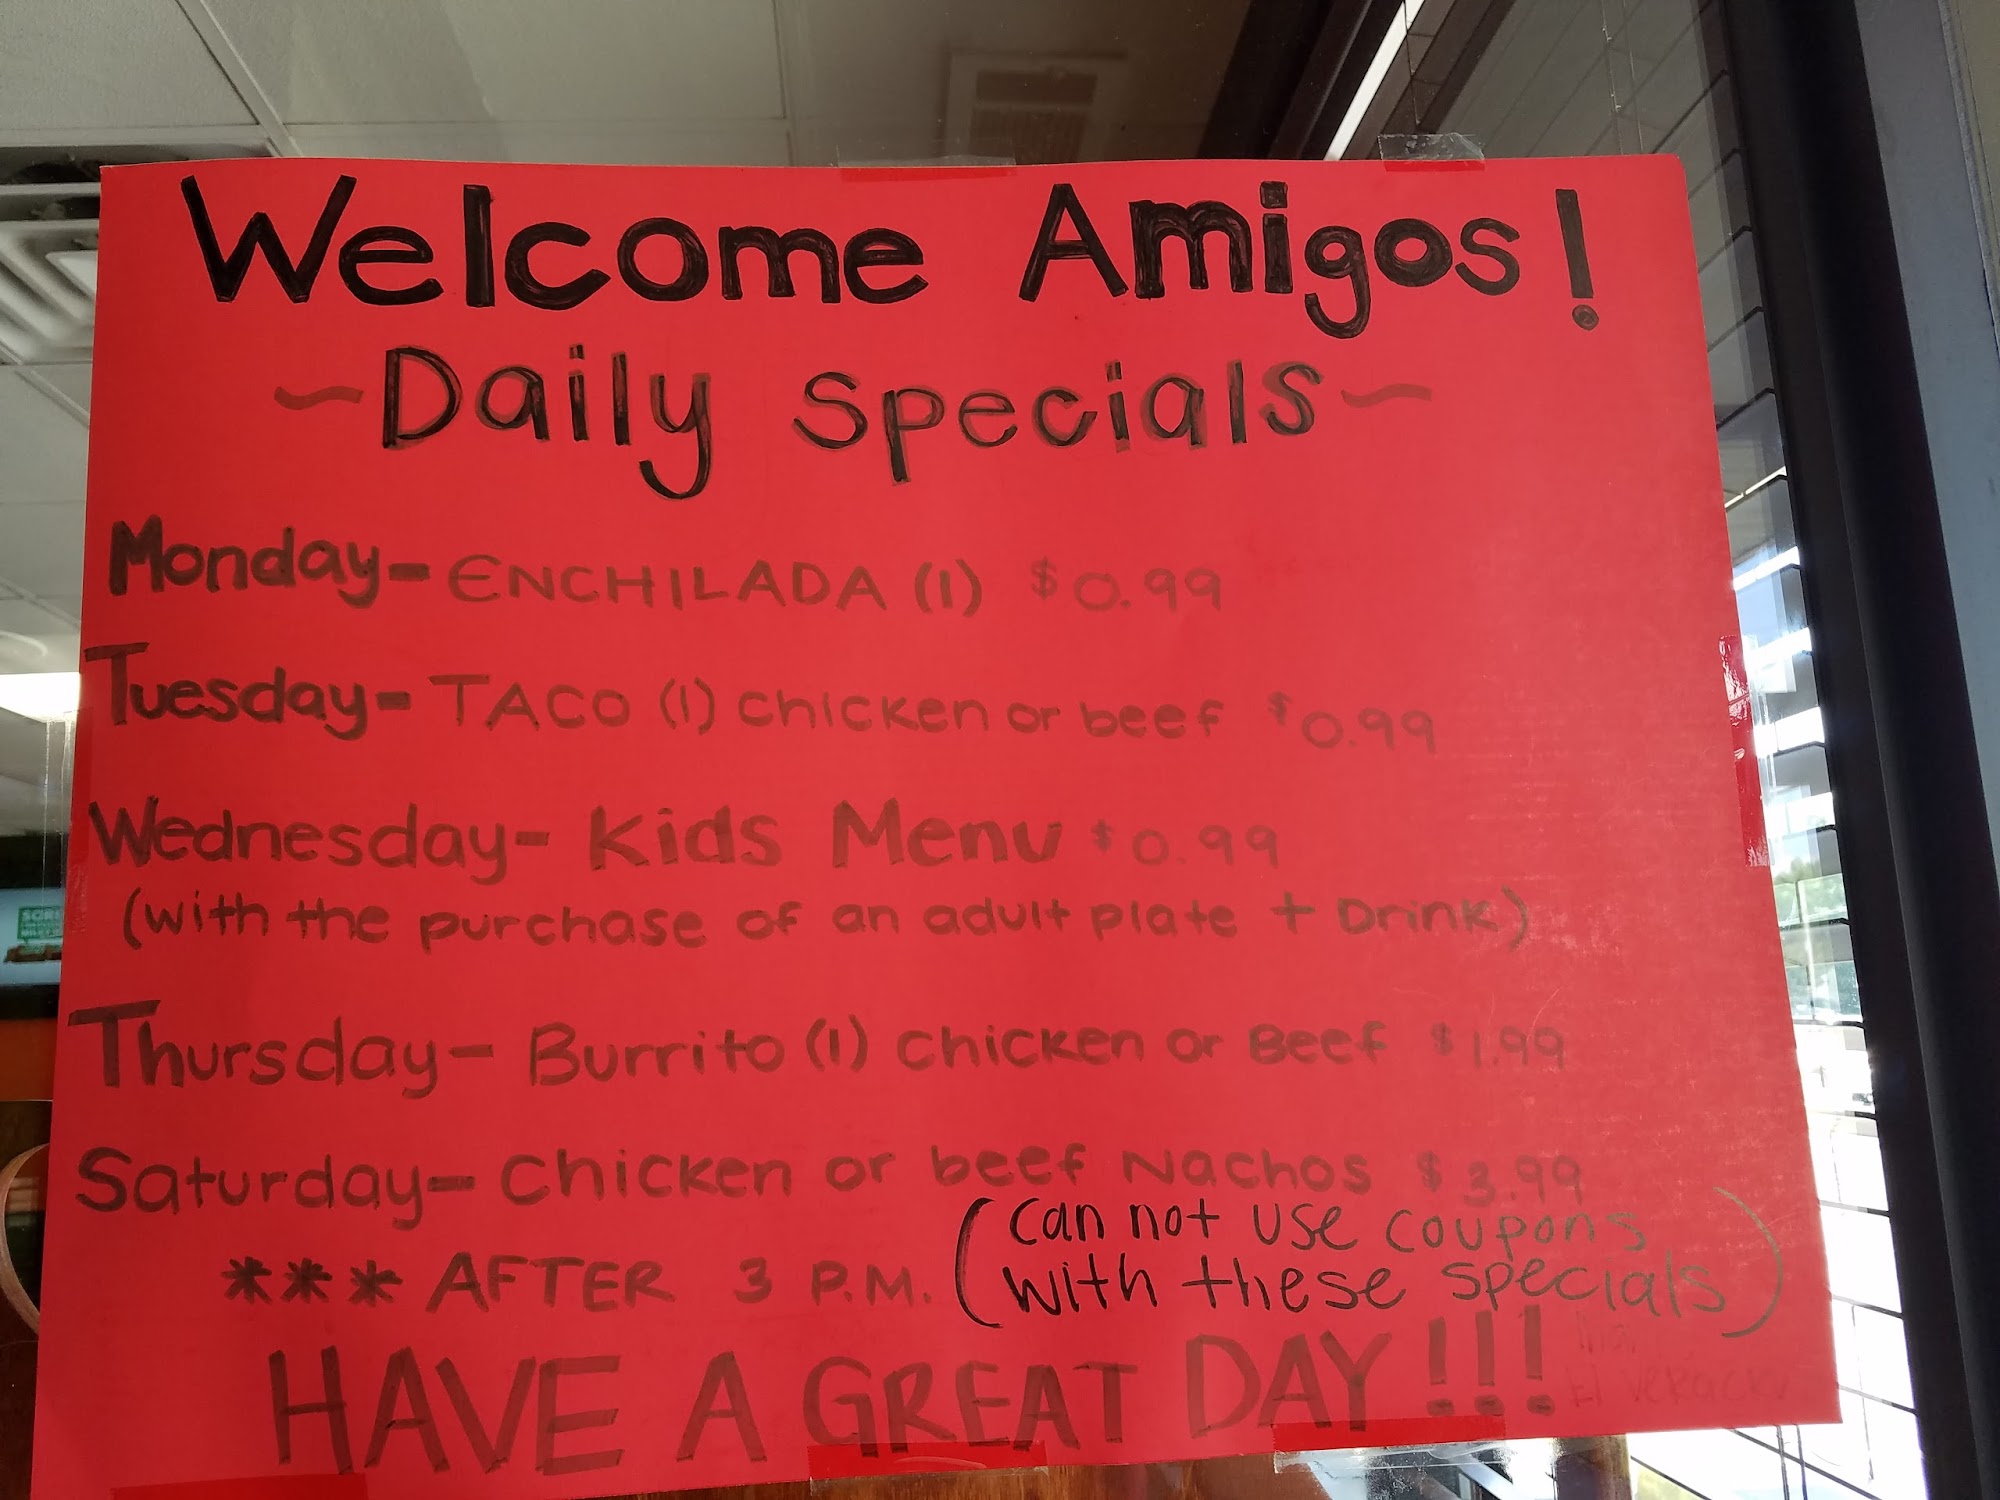 Welcome Amigos!
~Daily Specials~
Monday- ENCHILADA (1) $0.99
Tuesday- TACO (1) chicken or beef $0.99
Wednesday- Kids Menu $0.99
(with the purchase of an adult plate + Drink)
Thursday- Burrito (1) chicken or Beef $1.99
Saturday- Chicken or beef Nachos $3.99
*** AFTER 3 P.M. (can not use coupons
with these specials)
HAVE A GREAT DAY!!!